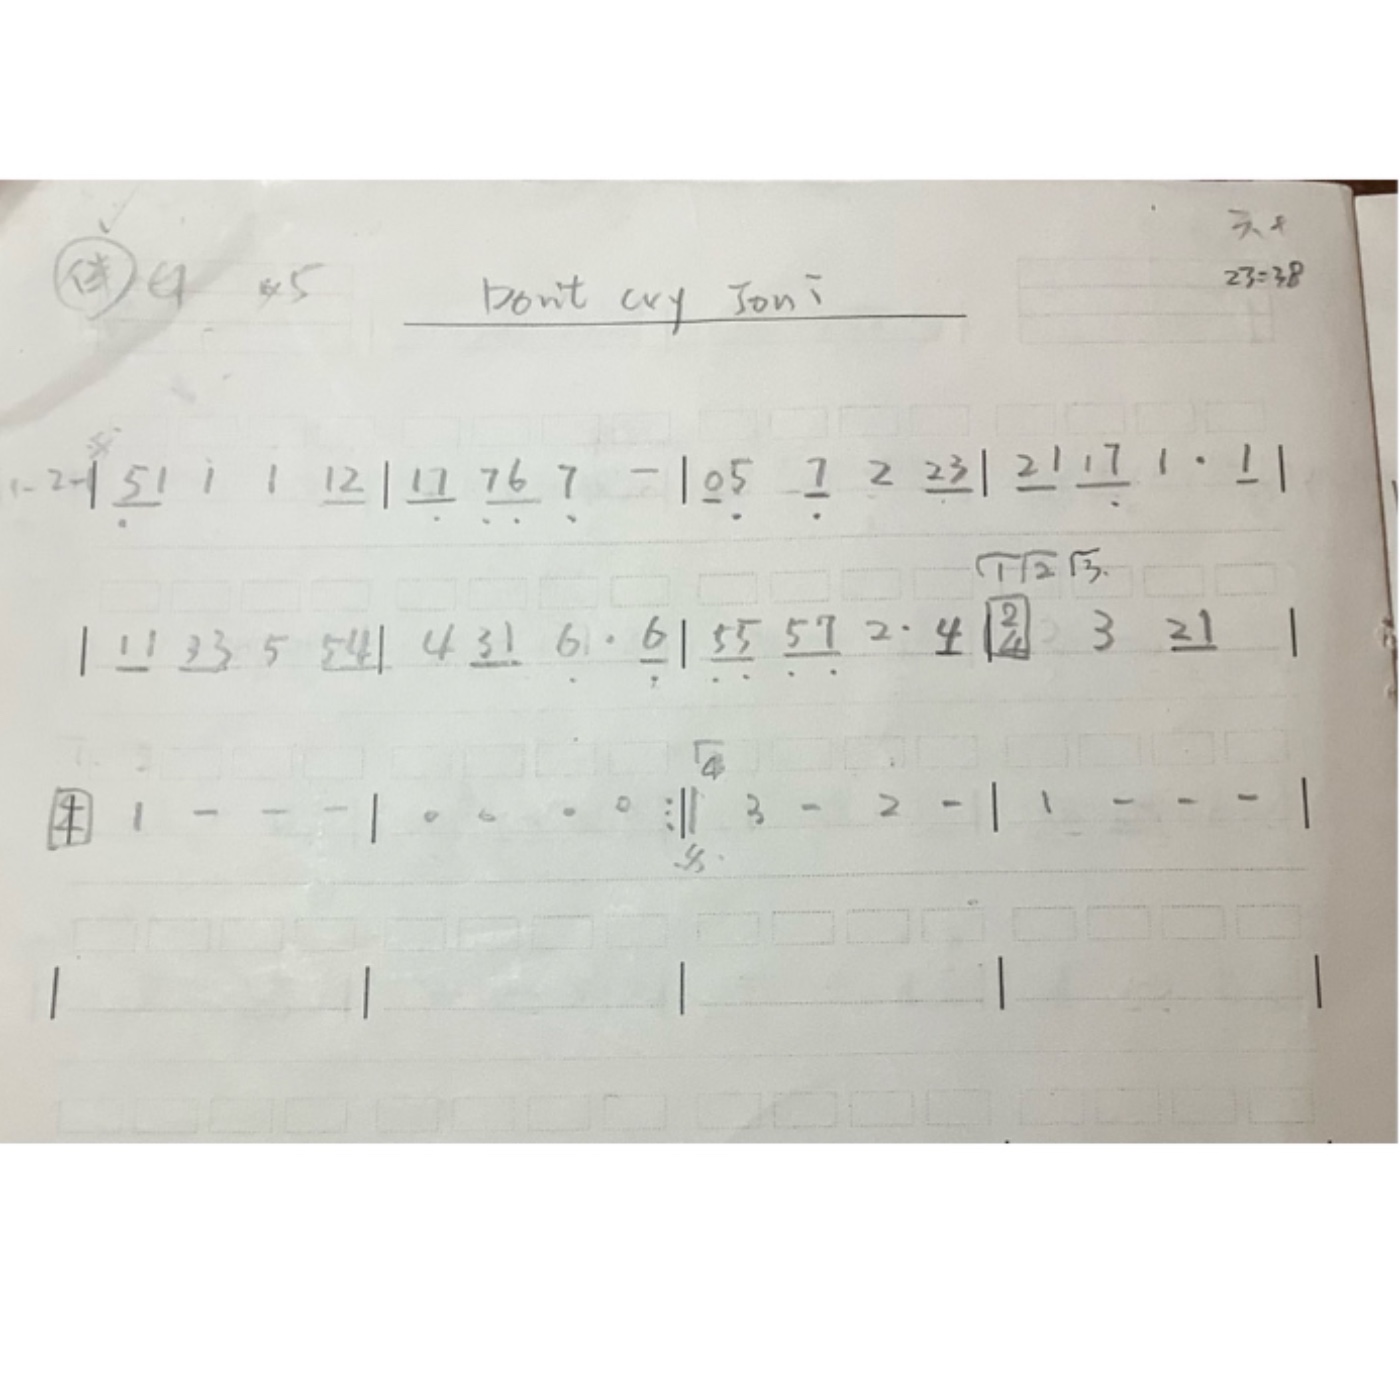 Don't cry Joni
23=38
| 51 1 1 12 | 17 76 7 - | 05 7 2 23 | 21 17 1 · 1 |
1 2 3.
| 11 33 5 54 | 4 31 6 · 6 | 55 57 2 · 4 | 2/4 3 21 |
4
4/4 1 - - - | 0 0 0 0 :|| 3 - 2 - | 1 - - - |